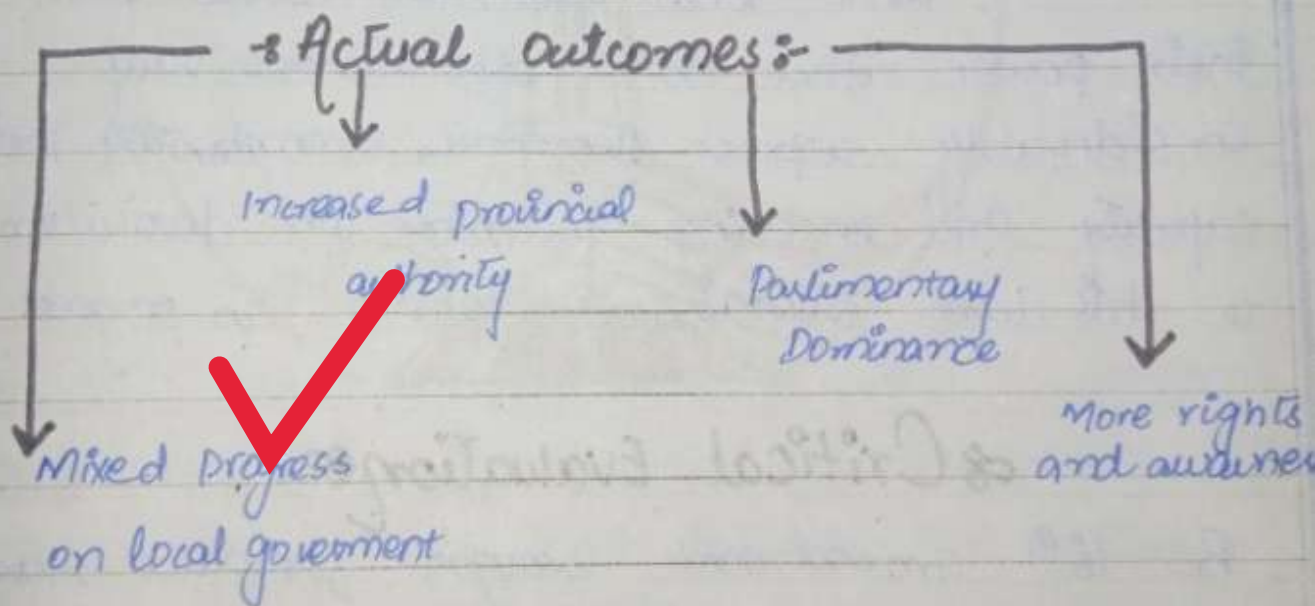 Actual outcomes:-
Increased provincial
authority
Parlimentary
Dominance
More rights
and
Mixed progress
on local goverment